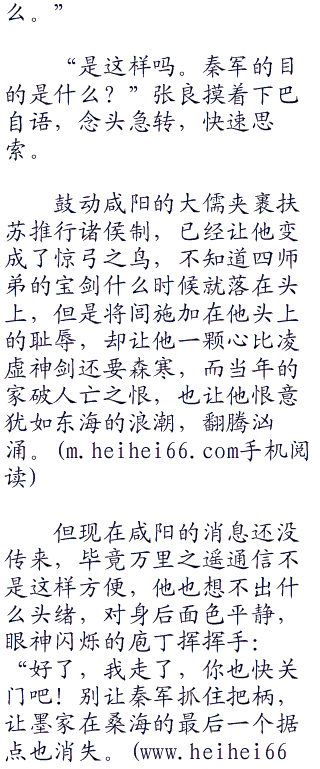 么。”
“是这样吗。秦军的目
的是什么？”张良摸着下巴
自语，念头急转，快速思
索。
鼓动咸阳的大儒夹裹扶
苏推行诸侯制，已经让他变
成了惊弓之鸟，不知道四师
弟的宝剑什么时候就落在头
上，但是将闾施加在他头上
的耻辱，却让他一颗心比凌
虚神剑还要森寒，而当年的
家破人亡之恨，也让他恨意
犹如东海的浪潮，翻腾汹
涌。(m.heihei66.com手机阅
读)
但现在咸阳的消息还没
传来，毕竟万里之遥通信不
是这样方便，他也想不出什
么头绪，对身后面色平静，
眼神闪烁的庖丁挥挥手：
“好了，我走了，你也快关
门吧！别让秦军抓住把柄，
让墨家在桑海的最后一个据
点也消失。(www.heihei66